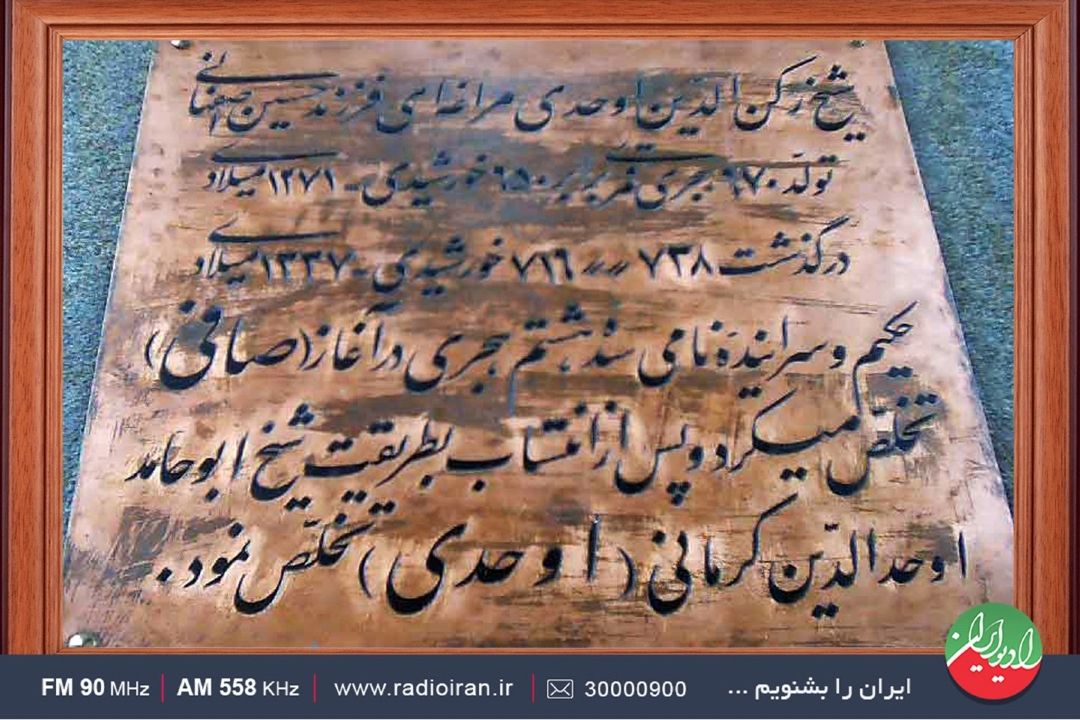 شیخ رکن الدین اوحدی مراغه ای فرزند حسین اصفهانی
تولد ۶۷۰ هجری قمری برابر ۶۵۰ خورشیدی - ۱۲۷۱ میلادی
درگذشت ۷۳۸ ٫٫ ٫٫ ۷۱۶ خورشیدی - ۱۳۳۷ میلادی
حکیم و سراینده نامی سده هشتم هجری در آغاز (صافی)
تخلّص میکرد و پس از انتساب بطریقت شیخ ابوحامد
اوحدالدّین کرمانی (اوحدی) تخلّص نمود.
رادیو ایران
ایران را بشنویم ... 30000900 www.radioiran.ir AM 558 KHz FM 90 MHz